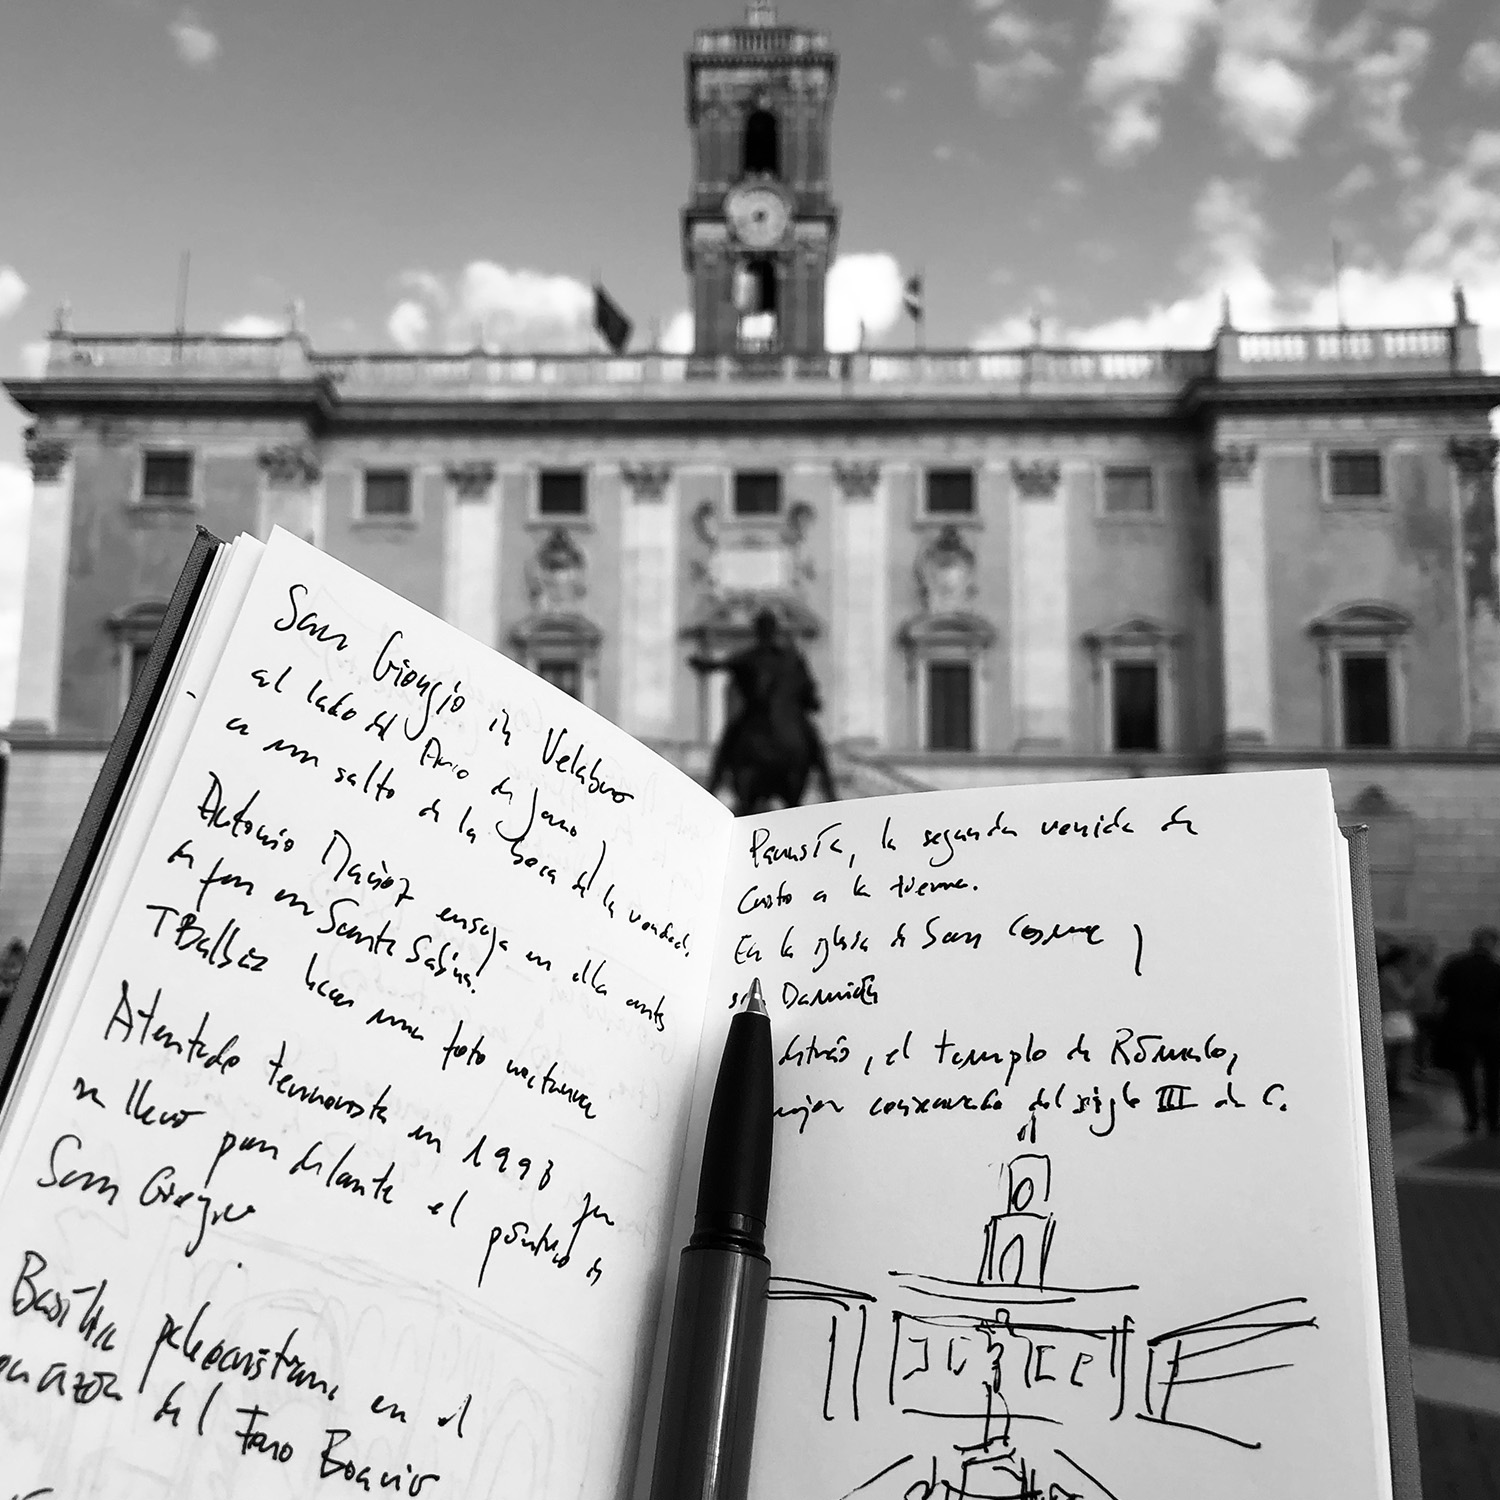 San Giorgio in Velabro
al lado del Arco de Jano,
a un salto de la boca de la verdad.
Antonio Muñoz ensaya en ella antes
de en Santa Sabina.
hacer una foto nocturna
Atentado terrorista en 1993
se llevó por delante el pórtico de
San Giorgio
Basílica paleocristiana en el
corazón del Foro Boario
Parusía, la segunda venida de
Cristo a la tierra.
En la iglesia de San Cosme
San Damián
detrás, el templo de Rómulo,
mejor conservado del siglo III d. C.